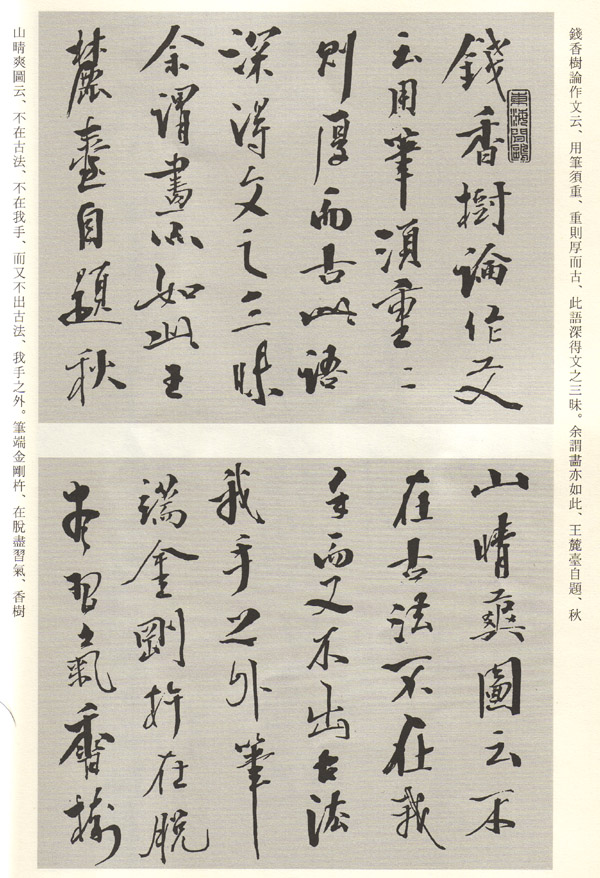 錢香樹論作文云、用筆須重、重則厚而古、此語深得文之三昧。余謂畫亦如此、王麓臺自題、秋
錢香樹論作文
云用筆須重〻
則厚而古此語
深得文之三昧
余謂畫亦如此王
麓臺自題秋
山晴爽圖云不
在古法不在我
手而又不出古法
我手之外筆
端金剛杵在脫
盡習氣香樹
山晴爽圖云、不在古法、不在我手、而又不出古法、我手之外。筆端金剛杵、在脫盡習氣、香樹